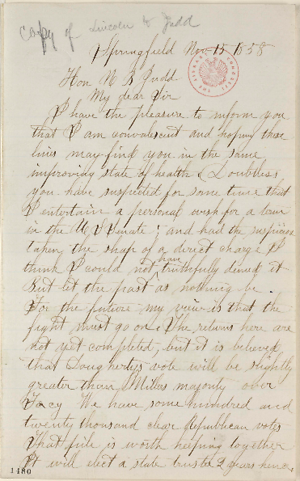 Copy of Lincoln to Judd
Springfield Nov 15 1858
Hon N B Judd
My dear Sir
I have the pleasure to inform you
that I am convalescent and hoping these
lines may find you in the same
improving state of health & Doubtless
you have suspected for some time that
I entertain a personal wish for a term
in the U S Senate; and had the suspicion
taken the shape of a direct charge I
think I could not have truthfully denied it
But let the past as nothing be.
For the future my view is that the
fight must go on. The returns here are
not yet completed, but it is believed
that Dougherty's vote will be slightly
greater than Millers majority over
Fracy We have some hundred and
twenty thousand clear Republican votes
That pile is worth keeping together
It will elect a state trustee 2 years hence
1480